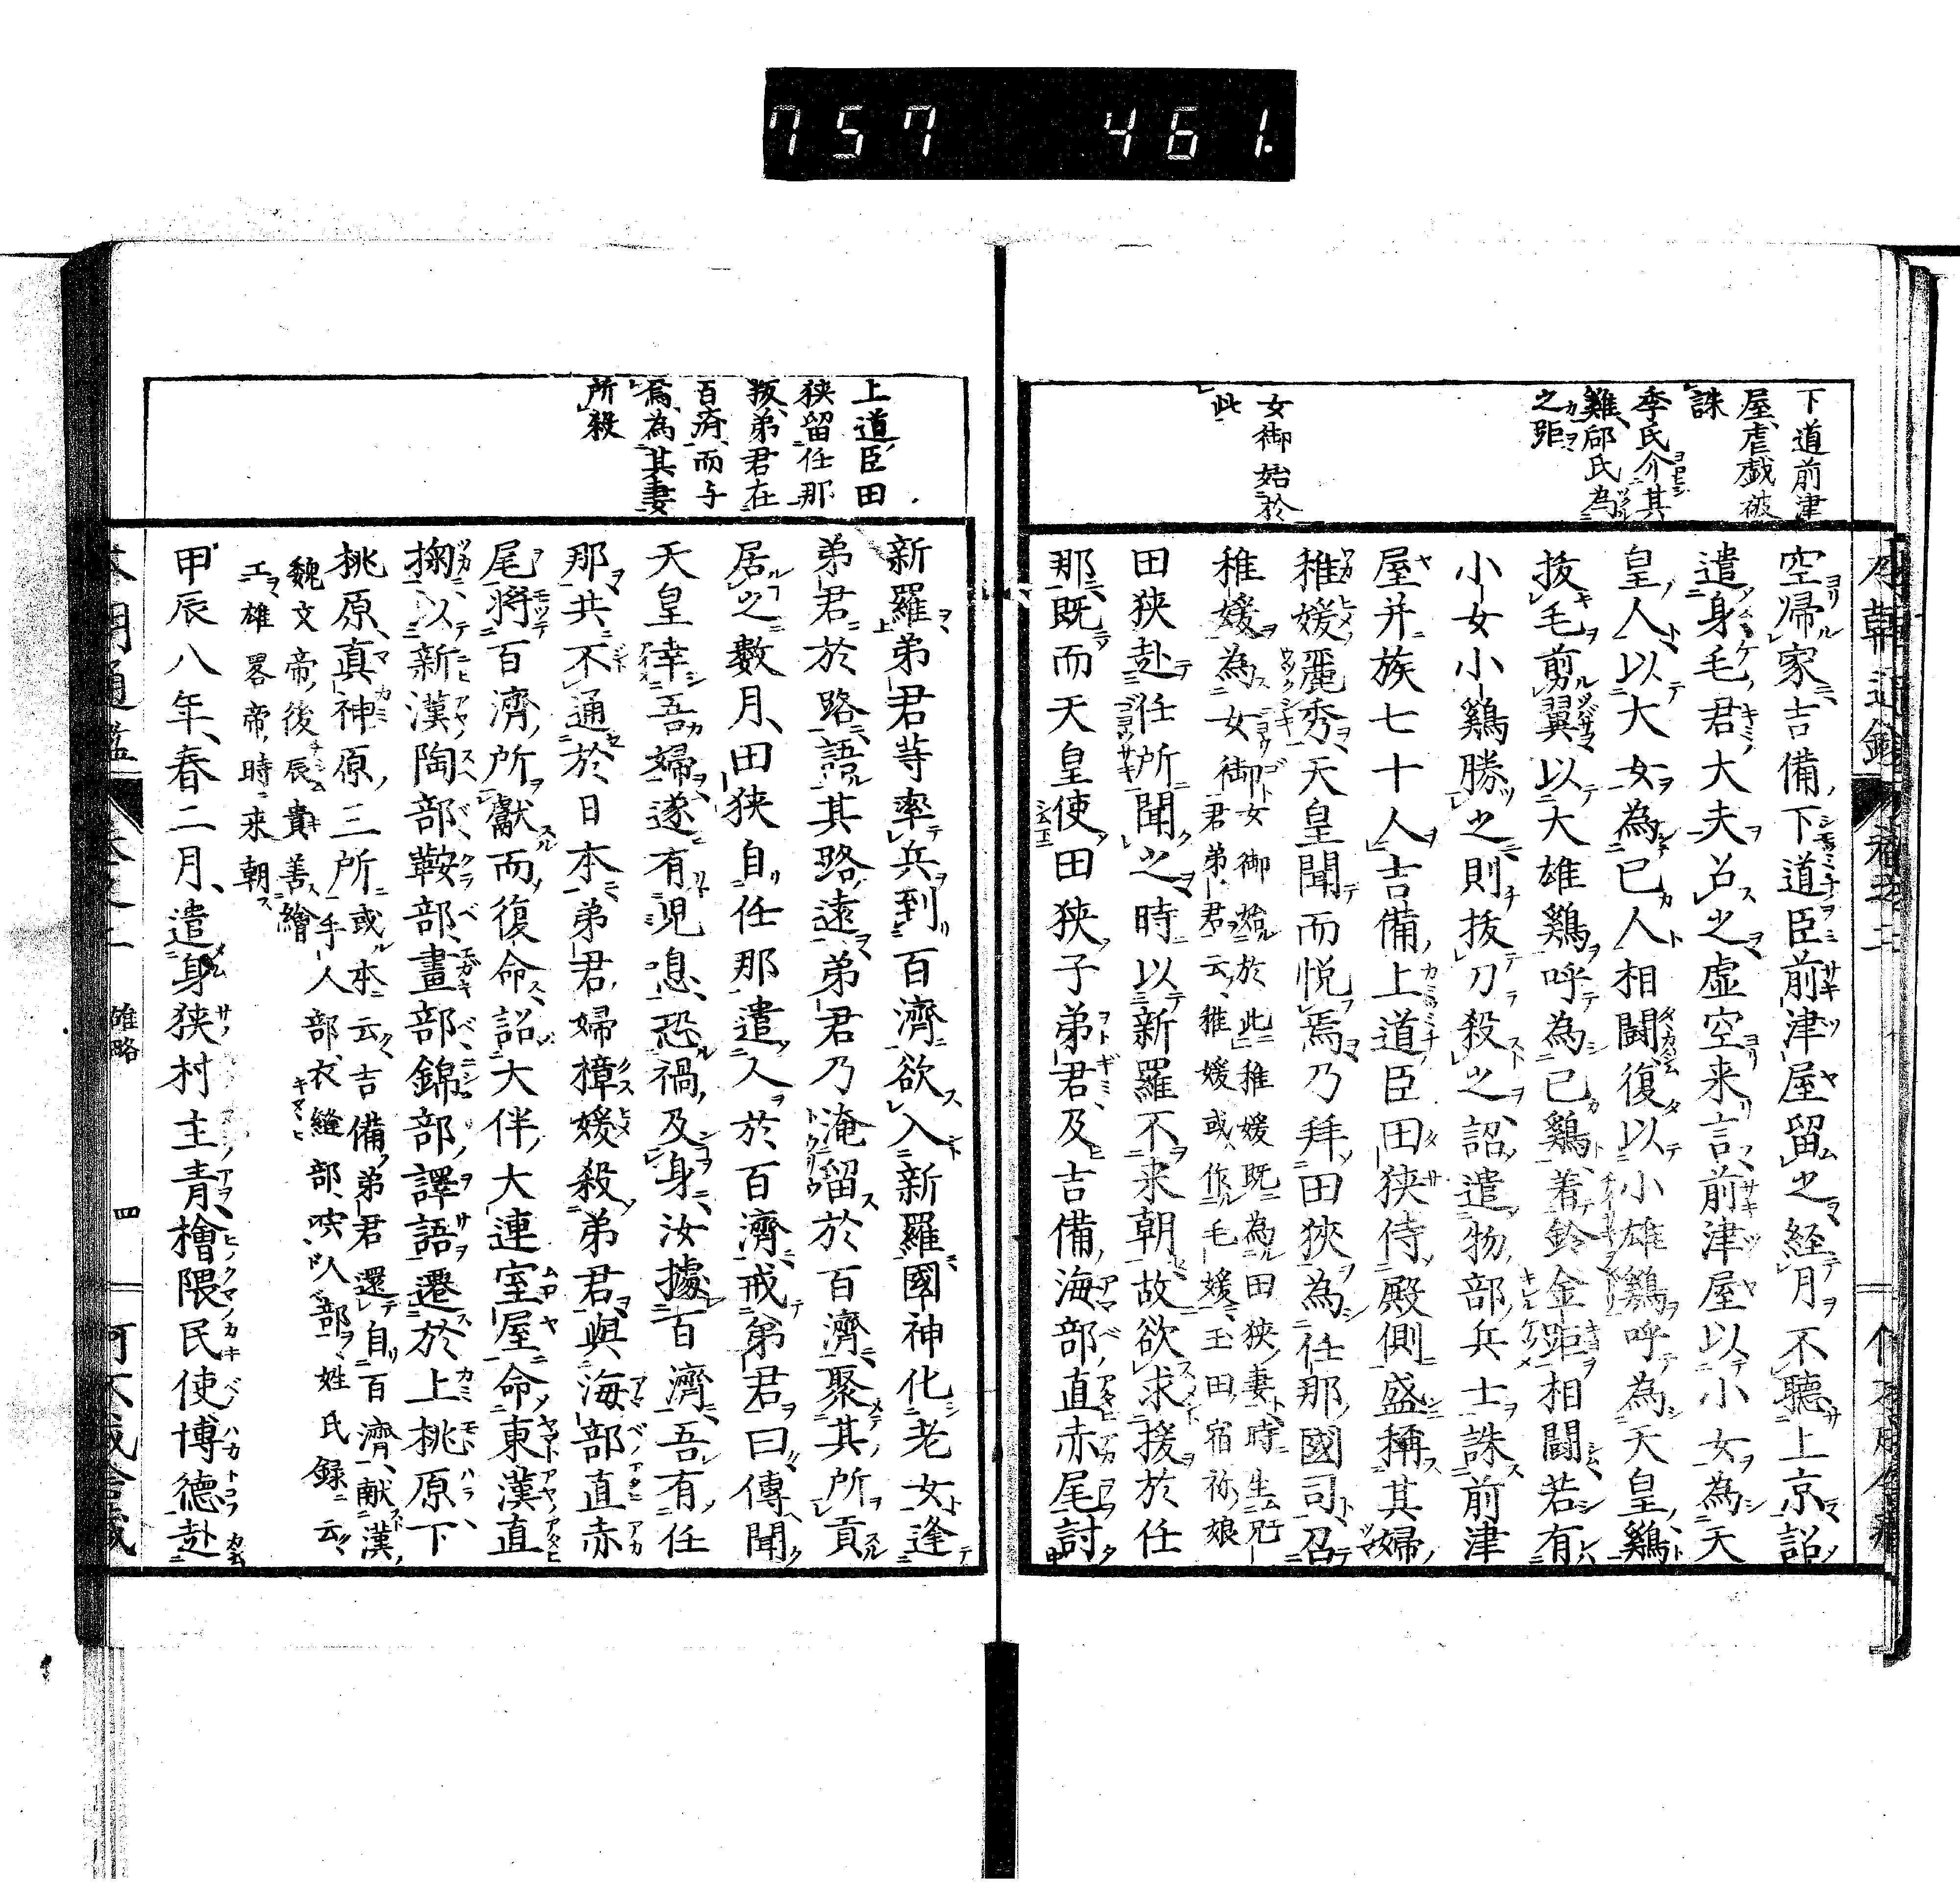 757 461.
下道前津
屋虐戯被
誅
季氏介其
雞郈氏為
之距
女御始於
此
空帰家吉備下道臣前津屋留之経月不聴上京詔
遣身毛君大夫召之虚空来言前津屋以小女為天
皇人以大女為己人相闘復以小雄鷄呼為天皇鷄
抜毛剪翼以大雄鷄呼為己鷄着鈴金距相闘若有
小女小鷄勝之則抜刀殺之詔遣物部兵士誅前津
屋并族七十人吉備上道臣田狭侍殿側盛稱其婦
稚媛麗秀天皇聞而悦焉乃拜田狹為任那國司召
稚媛為女御
女御始於此稚媛既為田狹妻時生兄
君弟君云稚媛或作毛媛玉田宿祢娘
田狭赴任所聞之時以新羅不来朝故欲求援於任
那既而天皇使田狭子弟君及吉備海部直赤尾討
上道臣田
狭留任那
叛弟君在
百済而与
焉為其妻
所殺
新羅弟君䒭率兵到百濟欲入新羅國神化老女逢
弟君於路語其路遠弟君乃淹留於百濟聚其所貢
居之數月田狭自任那遣人於百濟戒弟君曰傳聞
天皇幸吾婦遂有児息恐禍及身汝據百濟吾有任
那共不通於日本弟君婦樟媛殺弟君與海部直赤
尾將百濟所獻而復命詔大伴大連室屋命東漢直
掬以新漢陶部鞍部畫部錦部譯語遷於上桃原下
桃原真神原三所
或本云吉備弟君還自百濟献漢
手人部衣縫部宍人部姓氏録云
魏文帝後辰貴善繪
工雄畧帝時来朝
甲辰八年春二月遣身狭村主青檜隈民使博德赴
雄略
四